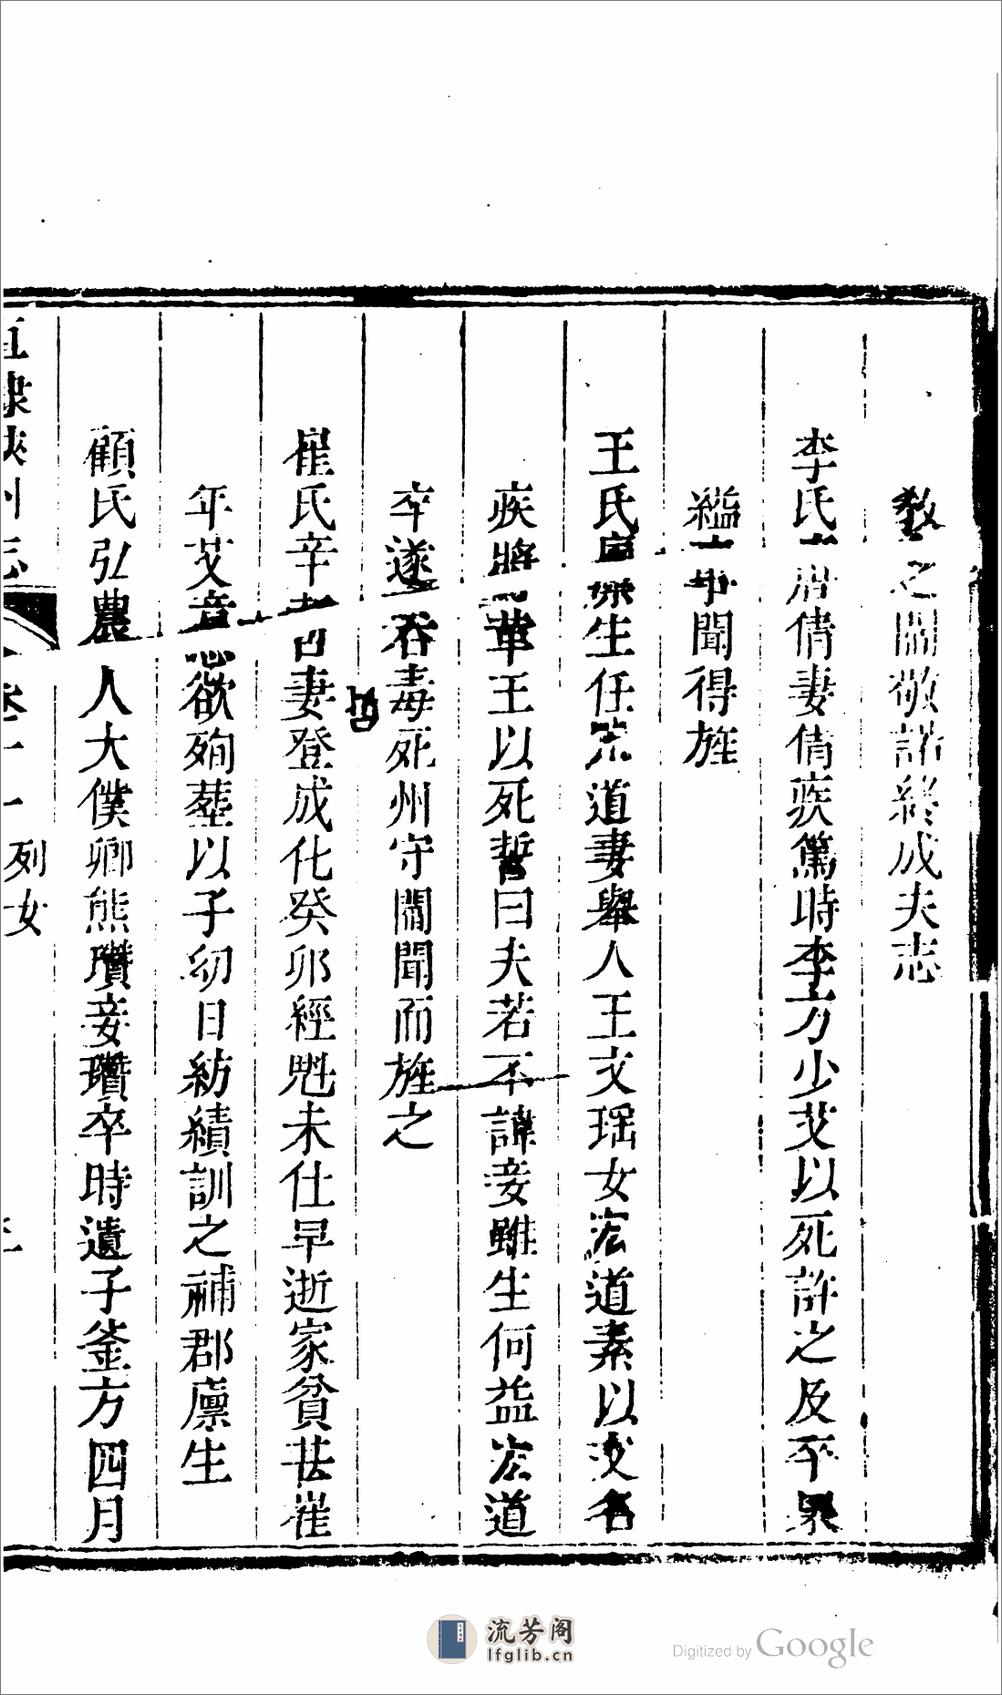 教之關敬諾終成夫志
李氏倩妻倩疾篤時李方少艾以死許之及卒果
縊聞得旌
王氏生任宏道妻舉人王文瑶女宏道素以文名
疾將革王以死誓曰夫若不諱妾雖生何益宏道
卒遂吞毒死州守關聞而旌之
哲
崔氏辛妻登成化癸卯經魁未仕早逝家貧甚崔
年艾章欲殉塟以子幼日紡績訓之補郡廩生
顧氏弘農人大僕卿熊瓚妾瓚卒時遺子釜方四月
直隸陝州志
卷十一列女
流芳阁
lfglib.cn
Digitized by Google